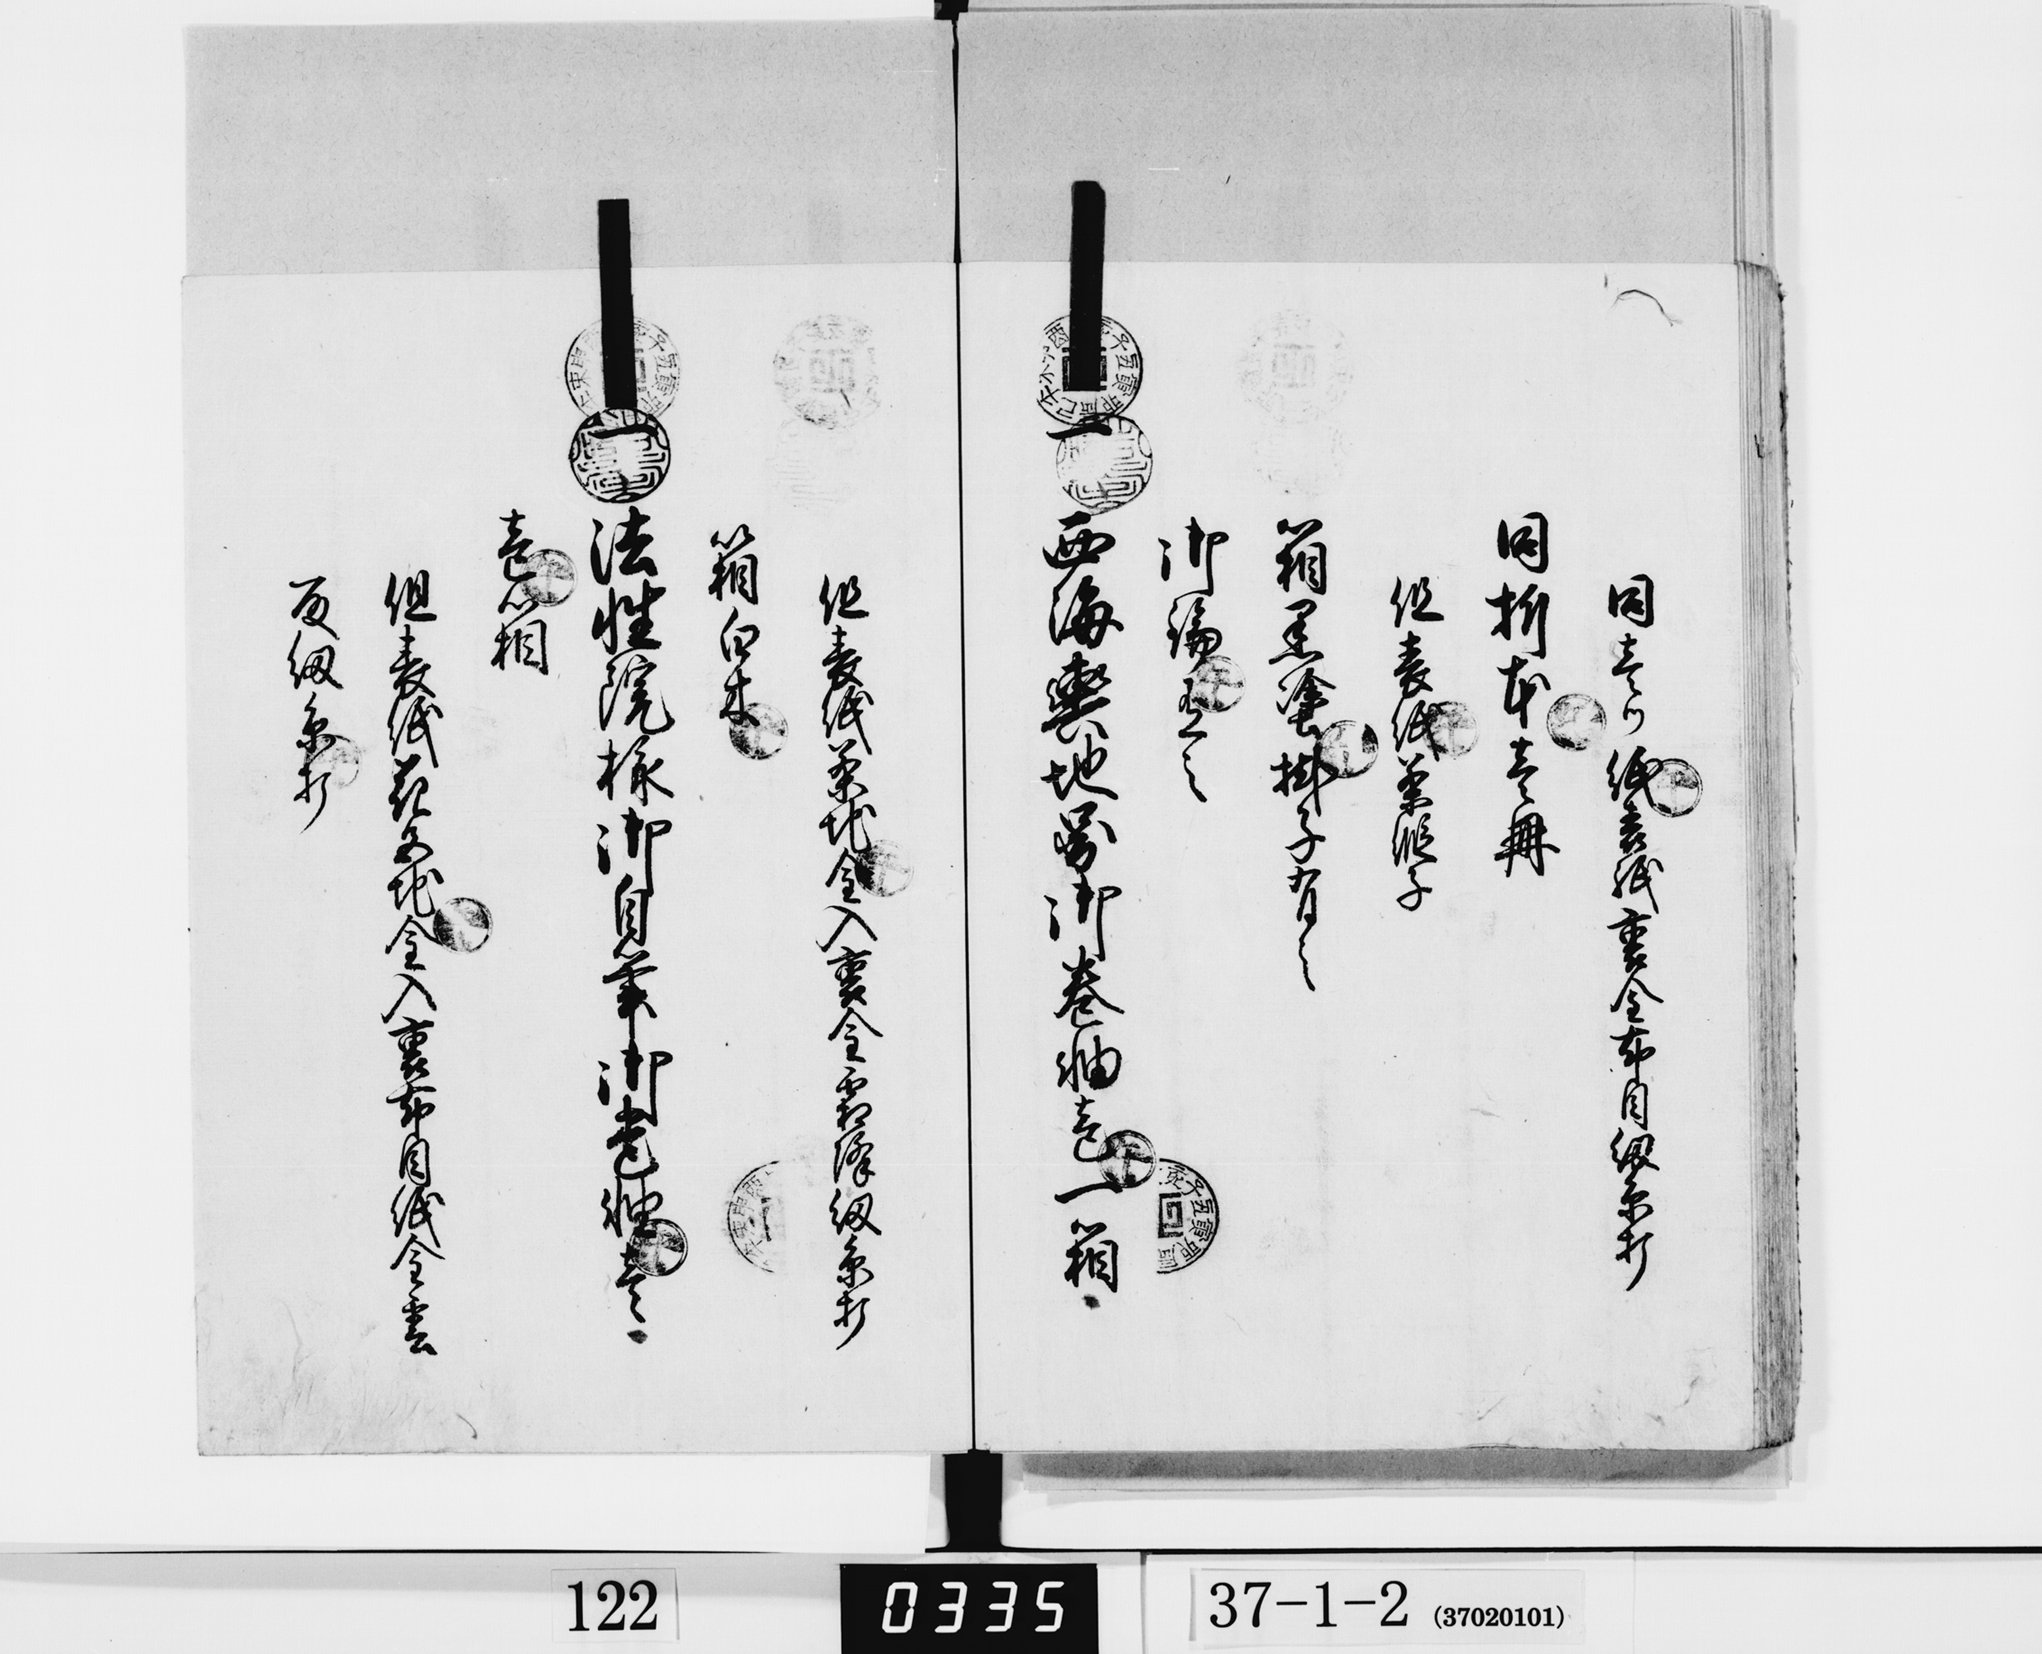 同壱ツ紙表紙裏金布目紐糸打
同折本壱冊
但表紙茶純子
箱黒塗掛子有之
御鑰有之
一西海輿地図御巻軸壱一箱
但表紙茶地金入裏金霜降紐糸打
箱白木
一法性院様御自筆御巻軸壱
壱箱
但表紙花色地金入裏布目紙金雲
反紐糸打
122
0335
37-1-2 (37020101)